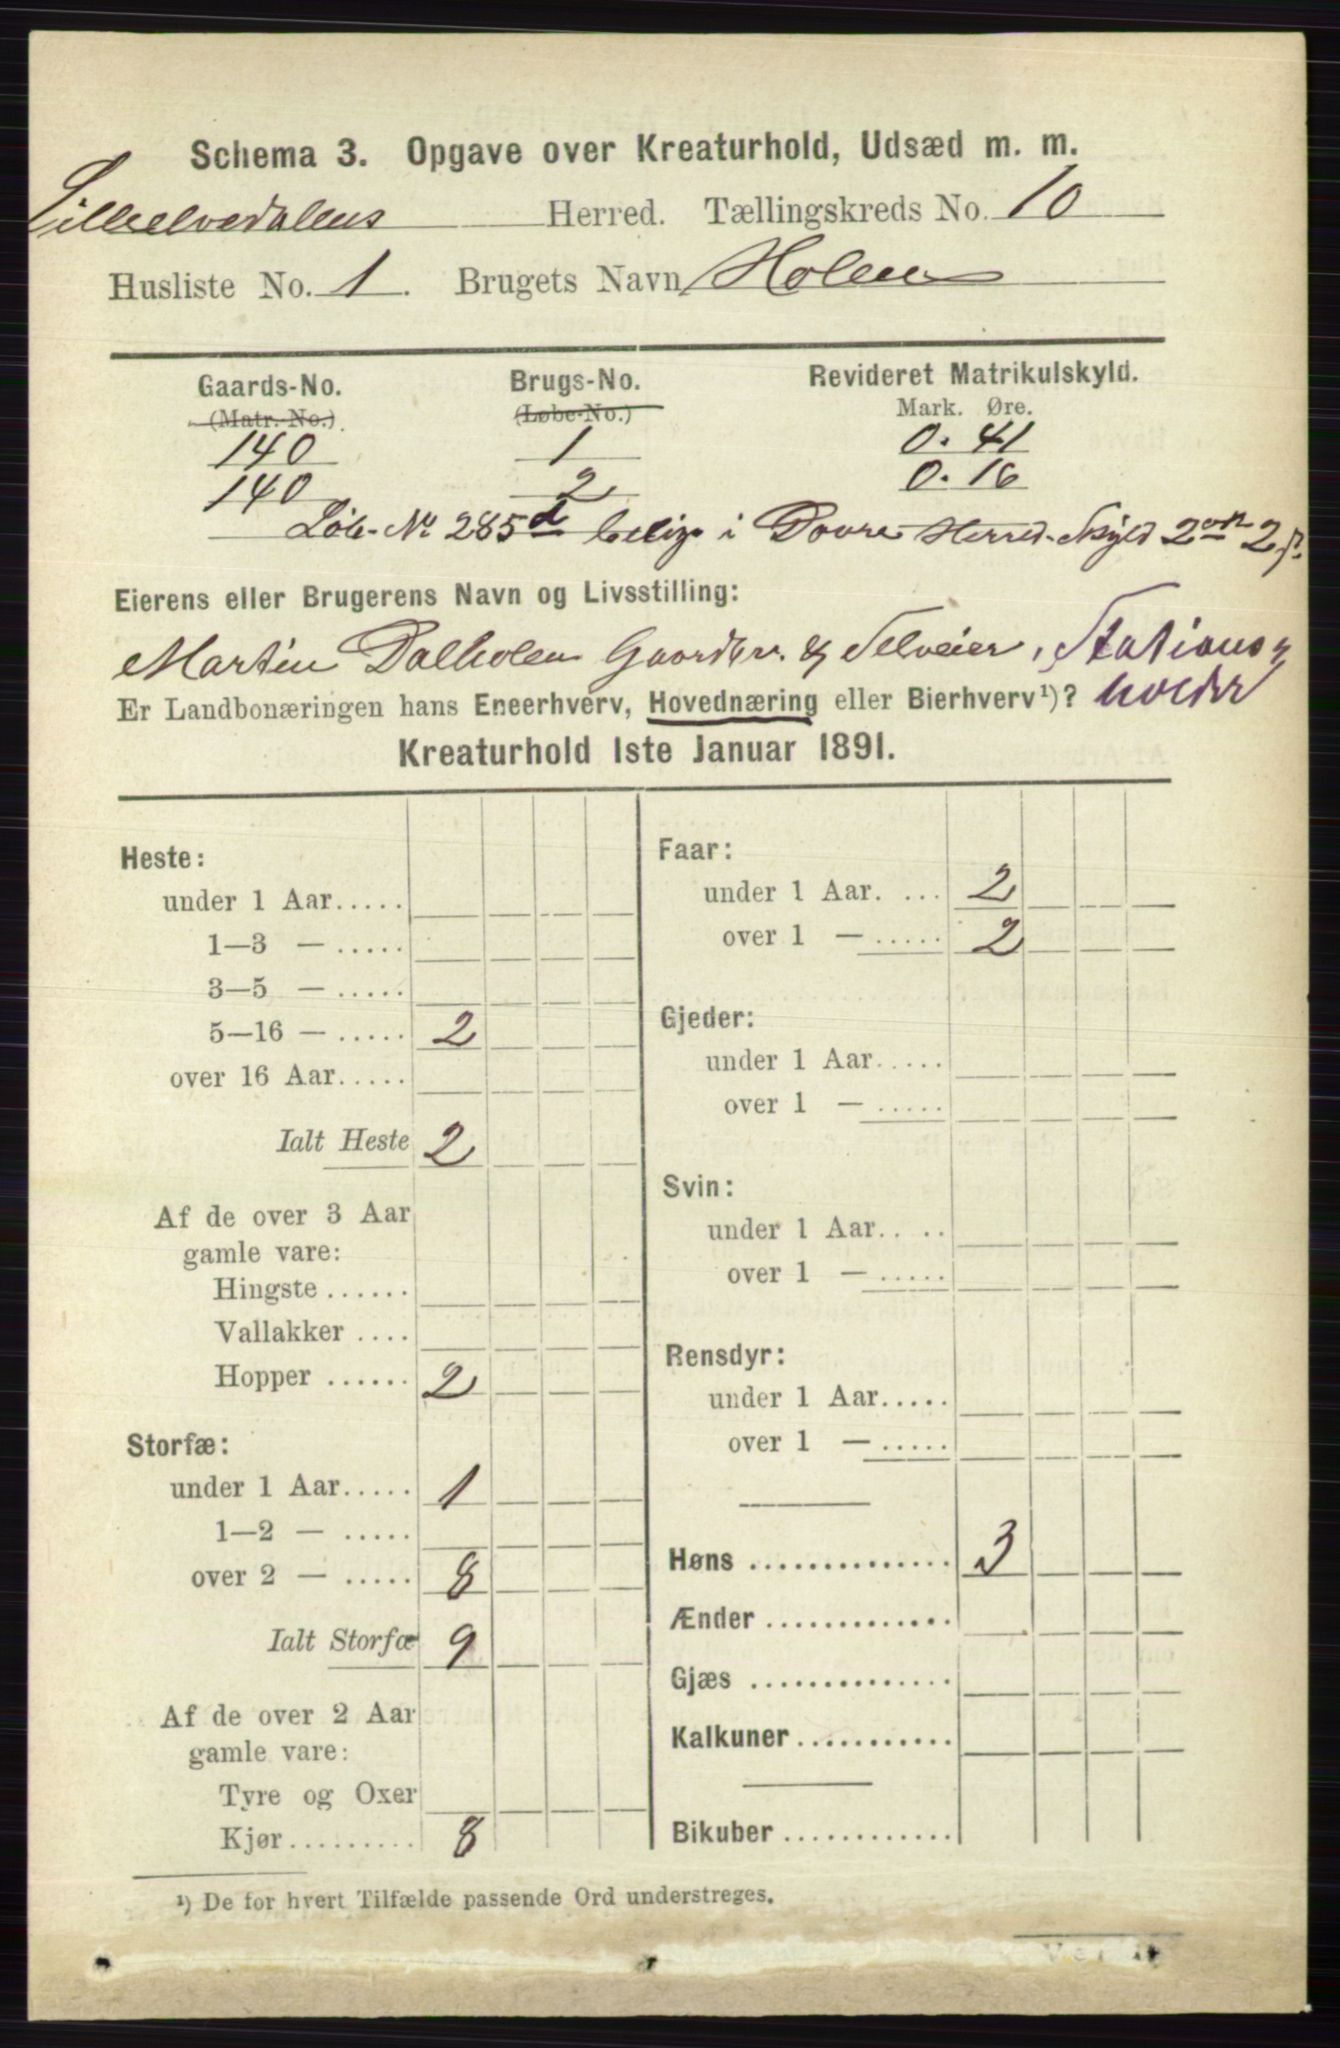 Schema 3. Opgave over Kreaturhold, Udsæd m. m.
Lilleelvedalens Herred. Tællingskreds No. 10
Husliste No. 1. Brugets Navn Holen
Gaards-No. Brugs-No. Revideret Matrikulskyld.
(Matr.-No.). (Løbe-No.) Mark. Øre.
140 1 0. 41
140 2 0. 16
Løb-No 285d belig. i Dovre Herred. Skyld 2 ort 2 s.
Eierens eller Brugerens Navn og Livsstilling:
Martin Dalholen Gaardbr. & Selveier, Stations-
holder
Er Landbonæringen hans Eneerhverv, Hovednæring eller Bierhverv¹)?
Kreaturhold 1ste Januar 1891.
Heste:
under 1 Aar.....
1—3 — .....
3—5 — .....
5—16 — ..... 2
over 16 Aar.....
Ialt Heste 2
Af de over 3 Aar
gamle vare:
Hingste ......
Vallakker ....
Hopper ...... 2
Storfæ:
under 1 Aar..... 1
1—2 — .....
over 2 — ..... 8
Ialt Storfæ 9
Af de over 2 Aar
gamle vare:
Tyre og Oxer
Kjør......... 8
Faar:
under 1 Aar. ... 2
over 1 — ..... 2
Gjeder:
under 1 Aar.....
over 1 — .....
Svin:
under 1 Aar.. ..
over 1 — .....
Rensdyr:
under 1 Aar.....
over 1 — .....
Høns .............. 3
Ænder .............
Gjæs ..............
Kalkuner...........
Bikuber ............
¹) De for hvert Tilfælde passende Ord understreges.